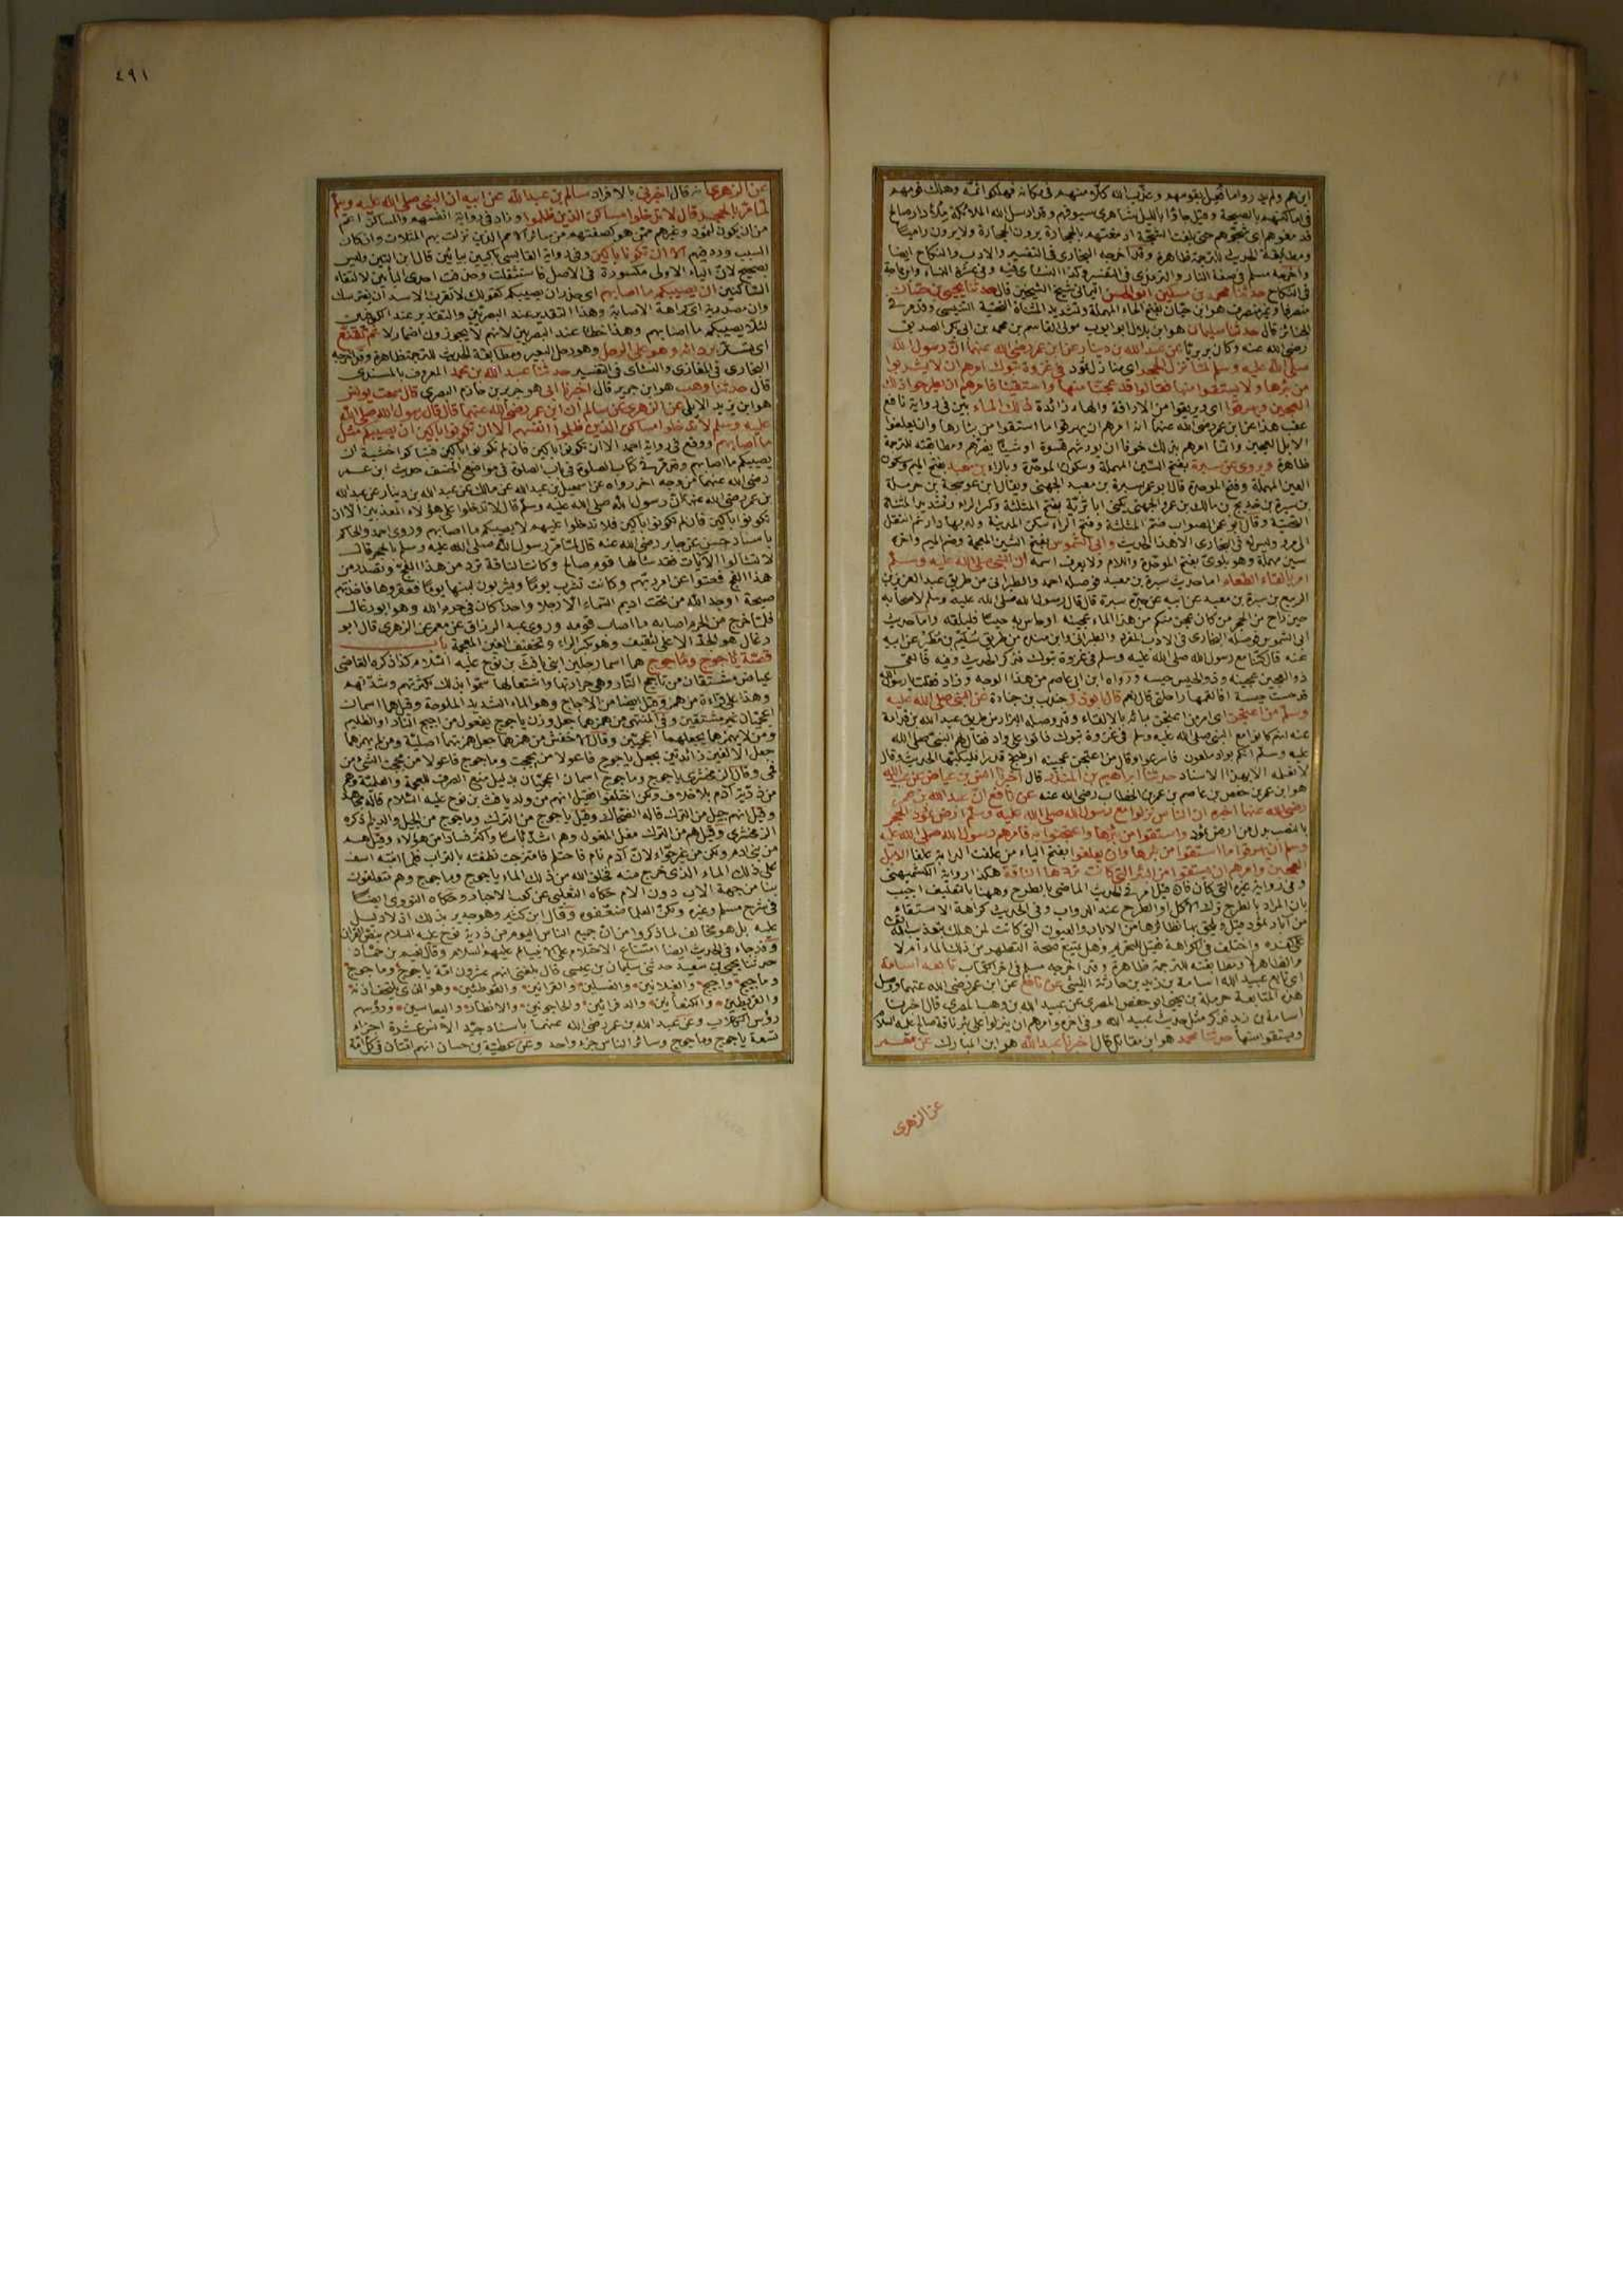 فى اماكنهم بالصيحة وقيل جاؤا بالليل شاهرى سيوفهم وقد ارسل الله الملائكة
ومطابقة الحديث للترجمة ظاهرة وقد اخرجه البخارى فى التفسير والادب والنكاح ايضا
واخرجه مسلم فى صفة النار والترمذى فى التفسير وكذا النسائى فيه
فى النكاح حدثنا محمد بن مسكين ابو الحسن اليمانى شيخ الشيخين قال حدثنا يحيى بن حسان
قال حدثنا سليمان هو ابن بلال ابو ايوب مولى القاسم بن محمد بن ابى بكر الصديق
رضى الله عنه وكان بربريا عن عبد الله بن دينار عن ابن عمر رضى الله عنهما ان رسول الله
صلى الله عليه وسلم لما نزل الحجر اى منازل ثمود فى غزوة تبوك امرهم ان لا يشربوا
من بئرها ولا يستقوا منها فقالوا قد عجنا منها واستقينا فامرهم ان يطرحوا ذلك
العجين ويهريقوا اى ويريقوا من الاراقة والهاء زائدة ذلك الماء بين فى رواية نافع
عقب هذا عن ابن عمر رضى الله عنهما انه امرهم ان يهريقوا ما استقوا من بئارها وان يعلفوا
الابل العجين وانما امرهم بذلك خوفا ان يورثهم قسوة او شيئا يضرهم ومطابقته للترجمة
ظاهرة ويروى عن سبرة بفتح السين المهملة وسكون الموحدة وبالراء بن معبد بفتح الميم وسكون
العين المهملة وفتح الموحدة قال ابو عمر سبرة بن معبد الجهنى ويقال ابن عوسجة بن حرملة
بن سبرة بن خديج بن مالك بن عمرو الجهنى يكنى ابا ثرية بفتح المثلثة وكسر الراء وتشديد المثناة
التحتية وقال ابو عمر الصواب ضم المثلثة وفتح الراء سكن المدينة وله بها دار ثم انتقل
الى مرو وليس له فى البخارى الا هذا الحديث وابى الشموس بفتح الشين المعجمة وضم الميم وآخره
سين مهملة وهو بلوى بفتح الموحدة واللام ولا يعرف اسمه ان النبى صلى الله عليه وسلم
امر بالقاء الطعام اما حديث سبرة بن معبد فوصله احمد والطبرانى من طريق عبد العزيز بن
الربيع بن سبرة بن معبد عن ابيه عن جده سبرة قال قال رسول الله صلى الله عليه وسلم لاصحابه
حين راح من الحجر من كان عجن منكم من هذا الماء عجينه او حاس به حيسا فليلقه واما حديث
ابى الشموس فوصله البخارى فى الادب المفرد والطبرانى وابن منده من طريق سليم بن مطير عن ابيه
عنه قال كنا مع رسول الله صلى الله عليه وسلم فى غزوة تبوك فذكر الحديث وفيه فالقى
ذو العجين عجينه وذو الحيس حيسه ورواه ابن ابى عاصم من هذا الوجه وزاد فقلت يا رسول الله
قد حست حيسة افالقمها راحلتى قال نعم قال ابو ذر جندب بن جنادة عن النبى صلى الله عليه
وسلم من اعتجن اى امر من اعتجن بمائه بالالقاء وقد وصله البزار من طريق عبد الله بن قدامة
عنه انهم كانوا مع النبى صلى الله عليه وسلم فى غزوة تبوك فاتوا على واد فقال لهم النبى صلى الله
عليه وسلم انكم بواد ملعون فاسرعوا وقال من اعتجن عجينه او طبخ قدرا فليكبها الحديث وقال
لا اعلمه الا بهذا الاسناد حدثنا ابراهيم بن المنذر قال اخبرنا انس بن عياض عن عبيد الله
هو ابن عمر بن حفص بن عاصم بن عمر بن الخطاب رضى الله عنه عن نافع ان عبد الله بن عمر
رضى الله عنهما اخبره ان الناس نزلوا مع رسول الله صلى الله عليه وسلم ارض ثمود الحجر
بالنصب بدل من ارض ثمود واستقوا من بئرها واعتجنوا به فامرهم رسول الله صلى الله عليه
وسلم ان يهريقوا ما استقوا من بئرها وان يعلفوا بفتح الياء من علفت الدابة علفا الابل
العجين وامرهم ان يستقوا من البئر التى كانت تردها الناقة هكذا رواية الكشميهنى
وفى رواية غيره التى كان فان قيل امر فى الحديث الماضى بالطرح وههنا بالتعليف اجيب
بان المراد بالطرح ترك الاكل او الطرح عند الدواب وفى الحديث كراهة الاستقاء
من آبار ثمود قيل ويلحق بها نظائرها من الابار والعيون التى كانت لمن هلك بتعذيب الله
على كفره واختلف فى الكراهة فقيل للتحريم وهل يمنع صحة التطهر من ذلك الماء ام لا
والظاهر لا ومطابقته للترجمة ظاهرة وقد اخرجه مسلم فى آخر الكتاب تابعه اسامة
اى تابع عبيد الله اسامة بن زيد بن حارثة الليثى عن نافع عن ابن عمر رضى الله عنهما ووصل
هذه المتابعة حرملة بن يحيى ابو حفص المصرى عن عبد الله بن وهب المصرى قال اخبرنا
اسامة بن زيد فذكر مثل حديث عبيد الله وفى آخره وامرهم ان ينزلوا على بئر ناقة صالح عليه السلام
ويستقوا منها حدثنا محمد هو ابن مقاتل قال اخبرنا عبد الله هو ابن المبارك عن معمر
عن الزهرى
٤٩١
عن الزهرى انه قال اخبرنى بالافراد سالم بن عبد الله عن ابيه ان النبى صلى الله عليه وسلم
لما مر بالحجر قال لا تدخلوا مساكن الذين ظلموا وزاد فى رواية انفسهم والمساكن اعم
من ان يكون لثمود وغيرهم ممن هو كصفتهم من سائر الامم الذين نزلت بهم المثلات وان كان
السبب ورد فيهم الا ان تكونوا باكين وفى رواية القابسى باكيين بيائين قال ابن التين وليس
بصحيح لان الياء الاولى مكسورة فى الاصل فاستثقلت وحذفت احدى اليائين لالتقاء
الساكنين ان يصيبكم ما اصابهم اى حذر ان يصيبكم كقولك لا تقرب الاسد ان يفترسك
وان مصدرية اى كراهة الاصابة وهذا التقدير عند البصريين والتقدير عند الكوفيين
لئلا يصيبكم ما اصابهم وهذا خطأ عند البصريين لانهم لا يجوزون اضمار لا ثم تقنع
اى تستر بردائه وهو على الرحل وهو رحل البعير ومطابقة الحديث للترجمة ظاهرة وقد اخرجه
البخارى فى المغازى والنسائى فى التفسير حدثنا عبد الله بن محمد المعروف بالمسندى
قال حدثنا وهب هو ابن جرير قال اخبرنا ابى هو جرير بن حازم البصرى قال سمعت يونس
هو ابن يزيد الايلى عن الزهرى عن سالم ان ابن عمر رضى الله عنهما قال قال رسول الله صلى الله
عليه وسلم لا تدخلوا مساكن الذين ظلموا انفسهم الا ان تكونوا باكين ان يصيبكم مثل
ما اصابهم ووقع فى رواية احمد الا ان تكونوا باكين فان لم تكونوا باكين فتباكوا خشية ان
يصيبكم ما اصابهم وقد مر فى كتاب الصلوة فى باب الصلوة فى مواضع الخسف حديث ابن عمر
رضى الله عنهما من وجه آخر رواه عن اسمعيل بن عبد الله عن مالك عن عبد الله بن دينار عن عبد الله
بن عمر رضى الله عنهما ان رسول الله صلى الله عليه وسلم قال لا تدخلوا على هؤلاء المعذبين الا ان
تكونوا باكين فان لم تكونوا باكين فلا تدخلوا عليهم لا يصيبكم ما اصابهم وروى احمد والحاكم
باسناد حسن عن جابر رضى الله عنه قال لما مر رسول الله صلى الله عليه وسلم بالحجر قال
لا تسألوا الآيات فقد سألها قوم صالح وكانت الناقة ترد من هذا الفج وتصدر من
هذا الفج فعتوا عن امر ربهم وكانت تشرب يوما ويشربون لبنها يوما فعقروها فاخذتهم
صيحة اهمد الله من تحت اديم السماء الا رجلا واحدا كان فى حرم الله وهو ابو رغال
فلما خرج من الحرم اصابه ما اصاب قومه وروى عبد الرزاق عن معمر عن الزهرى قال ابو
رغال هو الجد الاعلى لثقيف وهو بكسر الراء وتخفيف الغين المعجمة باب
قصة يأجوج ومأجوج هما اسما رجلين ابنى يافث بن نوح عليه السلام كذا ذكره القاضى
عياض مشتقان من تأجج النار وهى حرارتها واشتعالها سموا بذلك لكثرتهم وشدتهم
وهذا على قراءة من همز وقيل ايضا من الاجاج وهو الماء الشديد الملوحة وقيل هما اسمان
اعجميان غير مشتقين وفى المنتهى من همزهما جعل وزن يأجوج يفعول من اجيج النار او الظليم
ومن لا يهمزهما يجعلهما اعجميين وقال الاخفش من همزهما جعل همزتهما اصلية ومن لم يهمزهما
جعل الالفين زائدتين يجعل ياجوج فاعولا من يججت وماجوج فاعولا من مججت الشئ من
فمى وقال الزمخشرى ياجوج وماجوج اسمان اعجميان بدليل منع الصرف للعجمة والعلمية وهم
من ذرية آدم بلا خلاف ولكن اختلفوا فقيل انهم من ولد يافث بن نوح عليه السلام قاله مجاهد
وقيل انهم جيل من الترك قاله الضحاك وقيل ياجوج من الترك وماجوج من الجيل والديلم ذكره
الزمخشرى وقيل هم من الترك مثل المغول وهم اشد بأسا واكثر فسادا من هؤلاء وقيل هم
من بنى آدم ولكن من غير حواء لان آدم نام فاحتلم فامتزجت نطفته بالتراب فلما انتبه اسف
على ذلك الماء الذى خرج منه فخلق الله من ذلك الماء ياجوج وماجوج وهم متعلقون
بنا من جهة الاب دون الام حكاه الثعلبى عن كعب الاحبار وحكاه النووى ايضا
فى شرح مسلم وغيره ولكن العلماء ضعفوه وقال ابن كثير وهو جدير بذلك اذ لا دليل
عليه بل هو مخالف لما ذكروا من ان جميع الناس اليوم من ذرية نوح عليه السلام بنص القرآن
وقد جاء فى الحديث ايضا امتناع الاحتلام على الانبياء عليهم السلام وقال نعيم بن حماد
حدثنا يحيى بن سعيد حدثنى سليمان بن عيسى قال بلغنى انهم عشرون امة ياجوج وماجوج
رؤس الكلاب وعن عبد الله بن عمر رضى الله عنهما باسناد جيد الانس عشرة اجزاء
تسعة ياجوج وماجوج وسائر الناس جزء واحد وعن عطية بن حسان انهم امتان فى كل امة